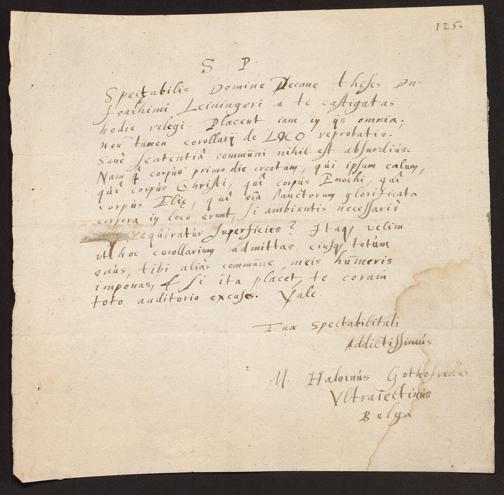 125.
S P.
Spectabilis Domine Decane theses Dn.
Joachimi Leiningeri a te castigatas
hodie relegi. Placent iam in ijs omnia;
non tamen corollarij de LOCO reprobatio.
Sane sententiâ communi nihil est absurdius.
Nam corpus primo die creatum, qui ipsum cælum,
quî corpus Christi, quî corpus Enochi, quî
corpus Eliæ, quî oîa Sanctorum glorificata
corpora in loco erunt, si ambientis necessariò
requiratur superficies? Itaq velim
ut hoc corollarium admittas, eiusq totum
onus, tibi aliàs commune, meis humeris
imponas, & si ita placet, te coram
toto auditorio excuses. Vale
Tuæ Spectabilitati
Addictissimus
M. Gothofredus
Ultraiectinus
Belga